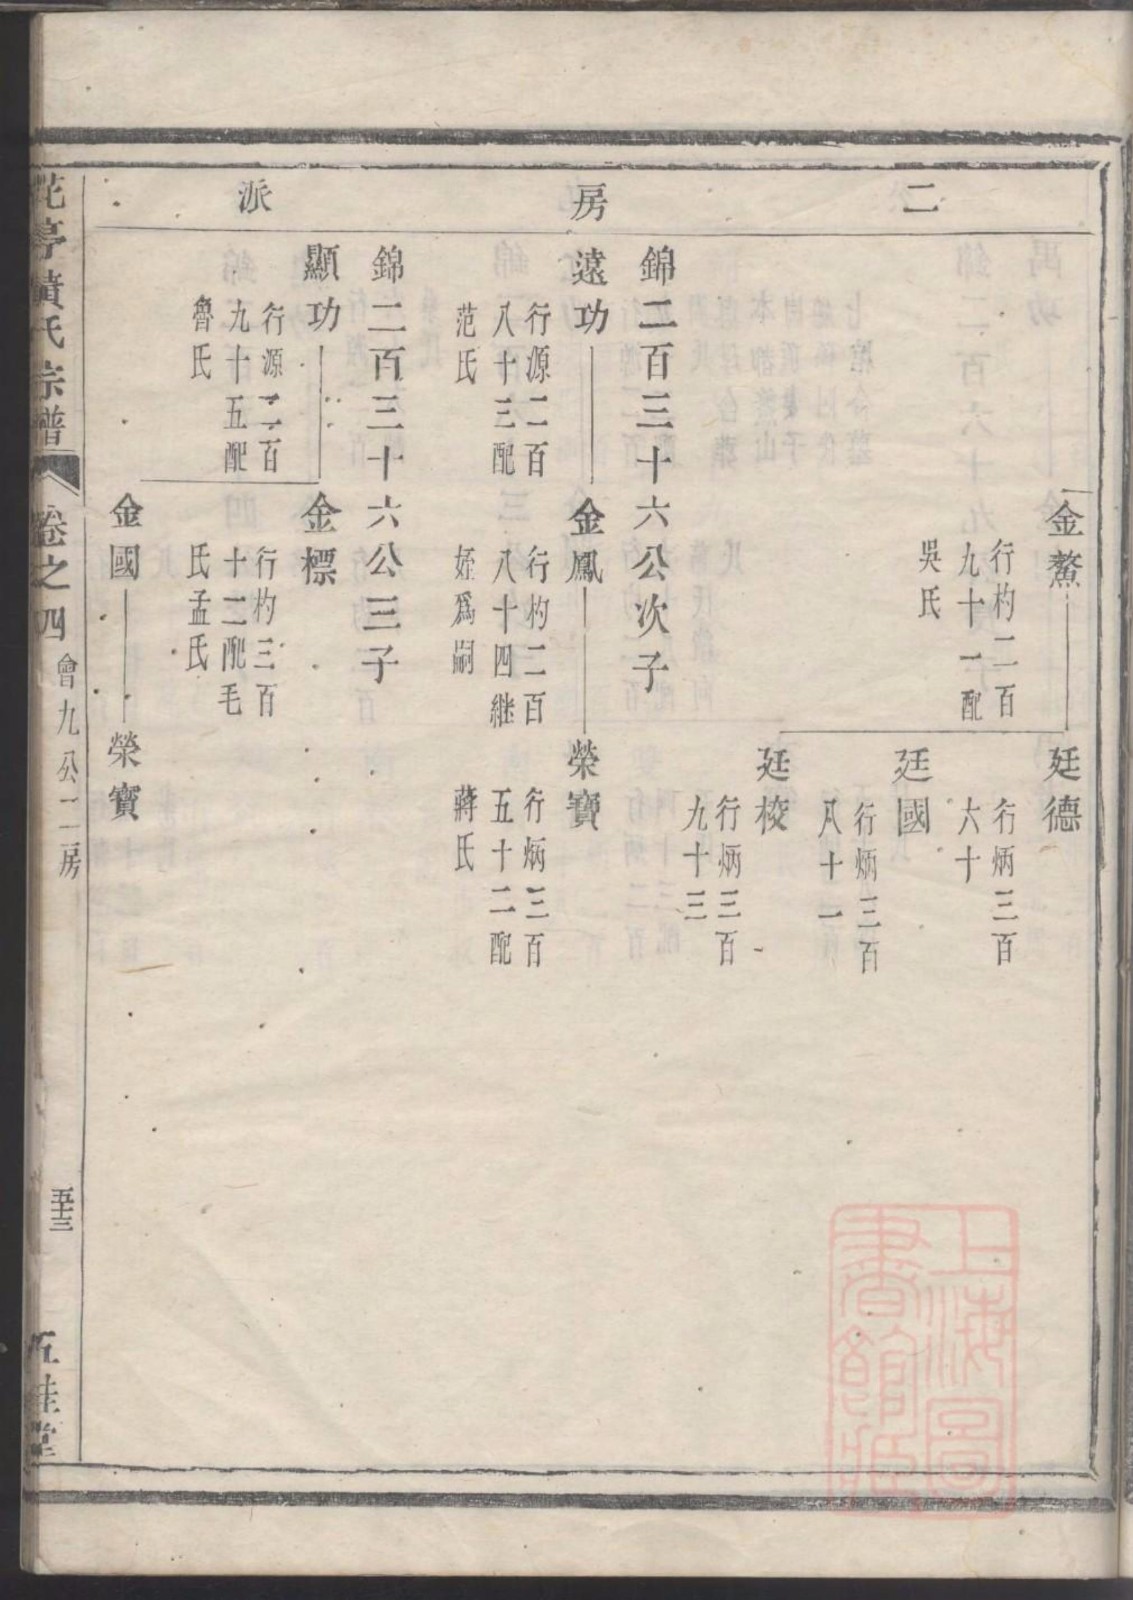 二房派
金鰲
行杓二百
九十一配
吳氏
廷德
行炳三百
六十
廷國
行炳三百
八十一
廷校
行炳三百
九十三
錦二百三十六公次子
遠功
行源二百
八十三配
范氏
金鳳
行杓二百
八十四継
姪爲嗣
榮寶
行炳三百
五十二配
蔣氏
錦二百三十六公三子
顯功
行源二百
九十五配
魯氏
金標
行杓三百
十二配毛
氏孟氏
金國
榮寶
花亭黃氏宗譜
卷之四
會九公二房
五十三
五桂堂
上海圖
書館藏